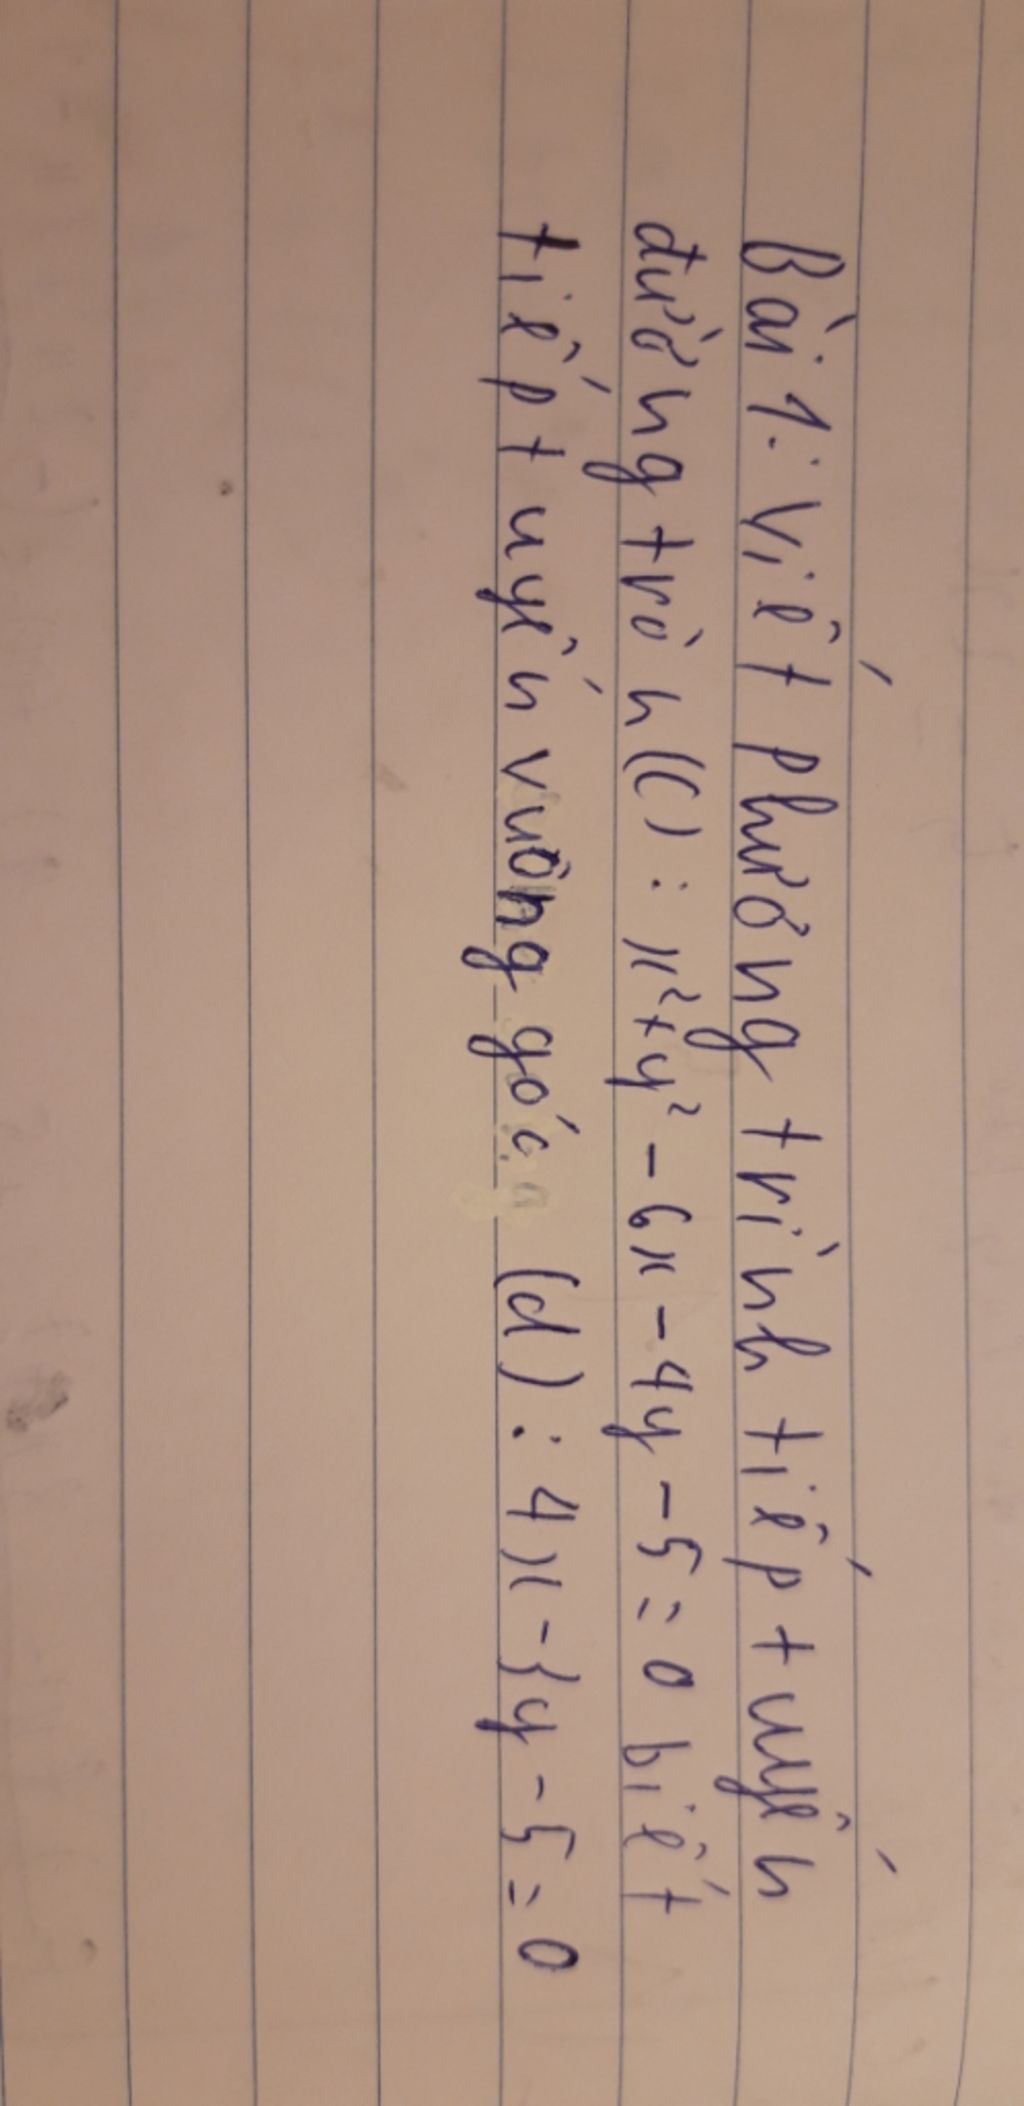 Bài 1: Viết phương trình tiếp tuyến
đường tròn (C): x² + y² - 6x - 4y - 5 = 0 biết
tiếp tuyến vuông góc (d): 4x - 3y - 5 = 0